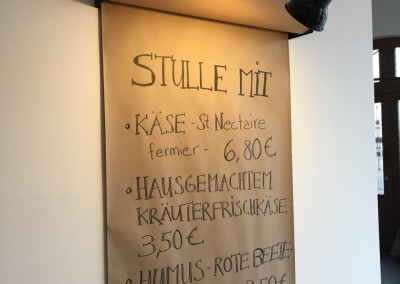 STULLE MIT
• KÄSE - St. Nectaire
fermier - 6,80€
• HAUSGEMACHTEM
KRÄUTERFRISCHKÄSE
3,50€
• HUMUS - ROTE BEETE-
3,50€